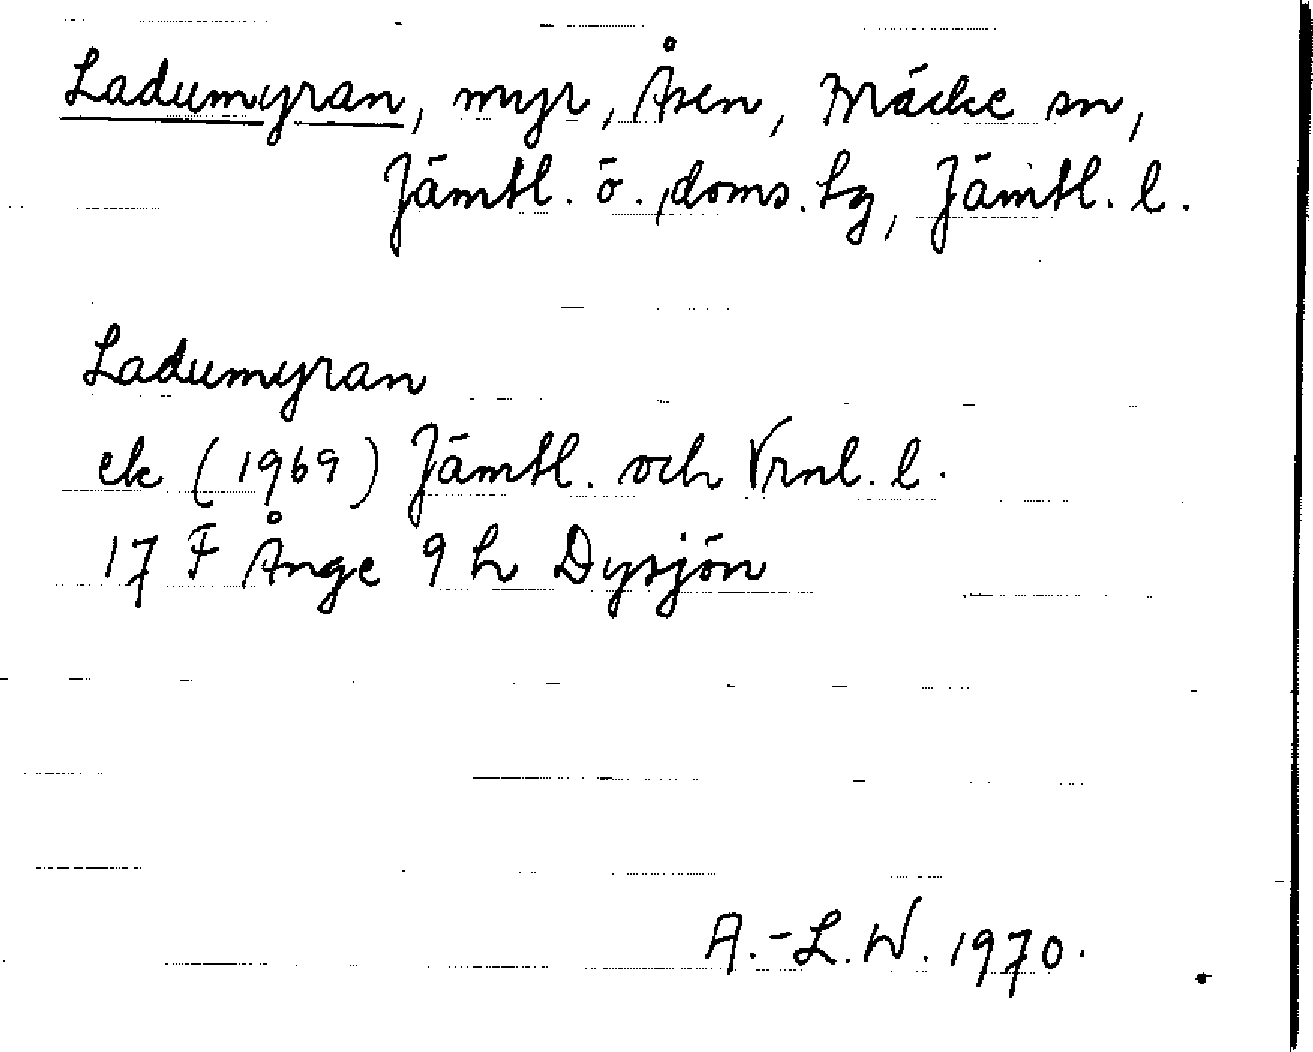 Ladumyran, myr, Åsen, Bräcke sn,
Jämtl. ö. doms. hg, Jämtl. l.
Ladumyran
ek (1969) Jämtl. och Vrnl. l.
17 F Ånge 9 h Dysjön
A.-L.W. 1970.